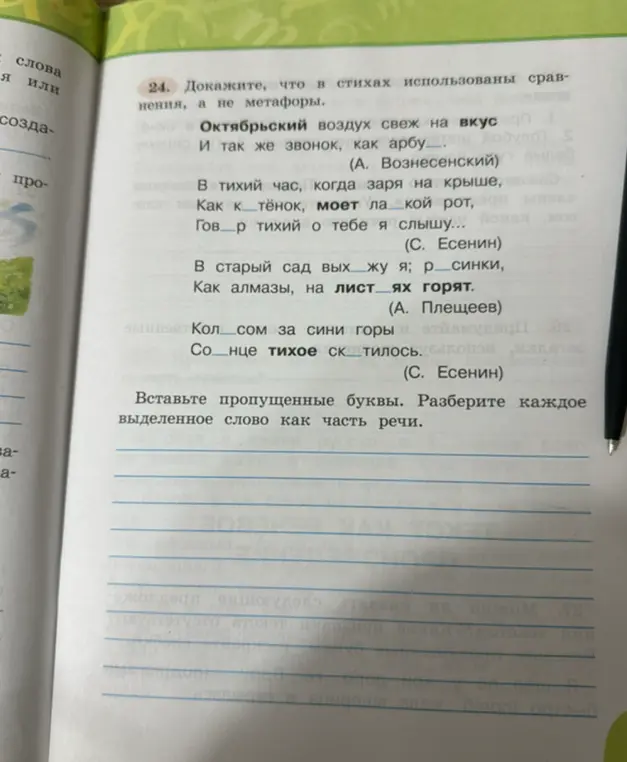 слова
я или
созда-
про-
за-
а-
24. Докажите, что в стихах использованы срав-
нения, а не метафоры.
Октябрьский воздух свеж на вкус
И так же звонок, как арбу__.
(А. Вознесенский)
В тихий час, когда заря на крыше,
Как к__тёнок, моет ла__кой рот,
Гов__р тихий о тебе я слышу...
(С. Есенин)
В старый сад вых__жу я; р__синки,
Как алмазы, на лист__ях горят.
(А. Плещеев)
Кол__сом за сини горы
Со__нце тихое ск__тилось.
(С. Есенин)
Вставьте пропущенные буквы. Разберите каждое
выделенное слово как часть речи.